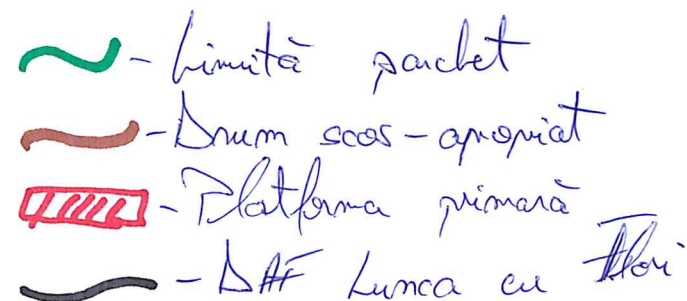 - Limită parchet
- Drum scos-apropiat
- Platforma primară
- DAF Lunca cu Flori